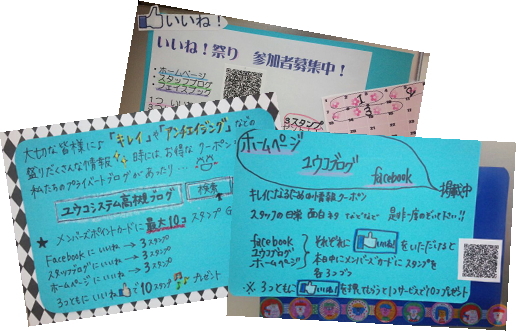 いいね!
いいね!祭り 参加者募集中!
・ホームページ
・スタッフブログ
・フェイスブック
3スタンプ
大切な皆様に♪「キレイ」や「アンチエイジング」などの
盛りだくさんな情報 時には、お得なクーポン
私たちのプライベートブログがあったり…
ユウコシステム高槻ブログ 検索
★ メンバーズポイントカードに最大10コスタンプG
Facebookにいいね → 3スタンプ
スタッフブログにいいね → 3スタンプ
ホームページにいいね → 3スタンプ
3つともにいいね で10スタンププレゼント
ホームページ
ユウコブログ
facebook
掲載中
キレイになるための情報クーポン
スタッフの日常 面白ネタなどなど 是非一度のぞいて下さい!!
facebook
ユウコブログ
ホームページ
それぞれに いいね! をいただけると
本日中にメンバーズカードにスタンプを
各3コずつ
※ 3つともに いいね! を押してもらうと1コサービスで10コプレゼント